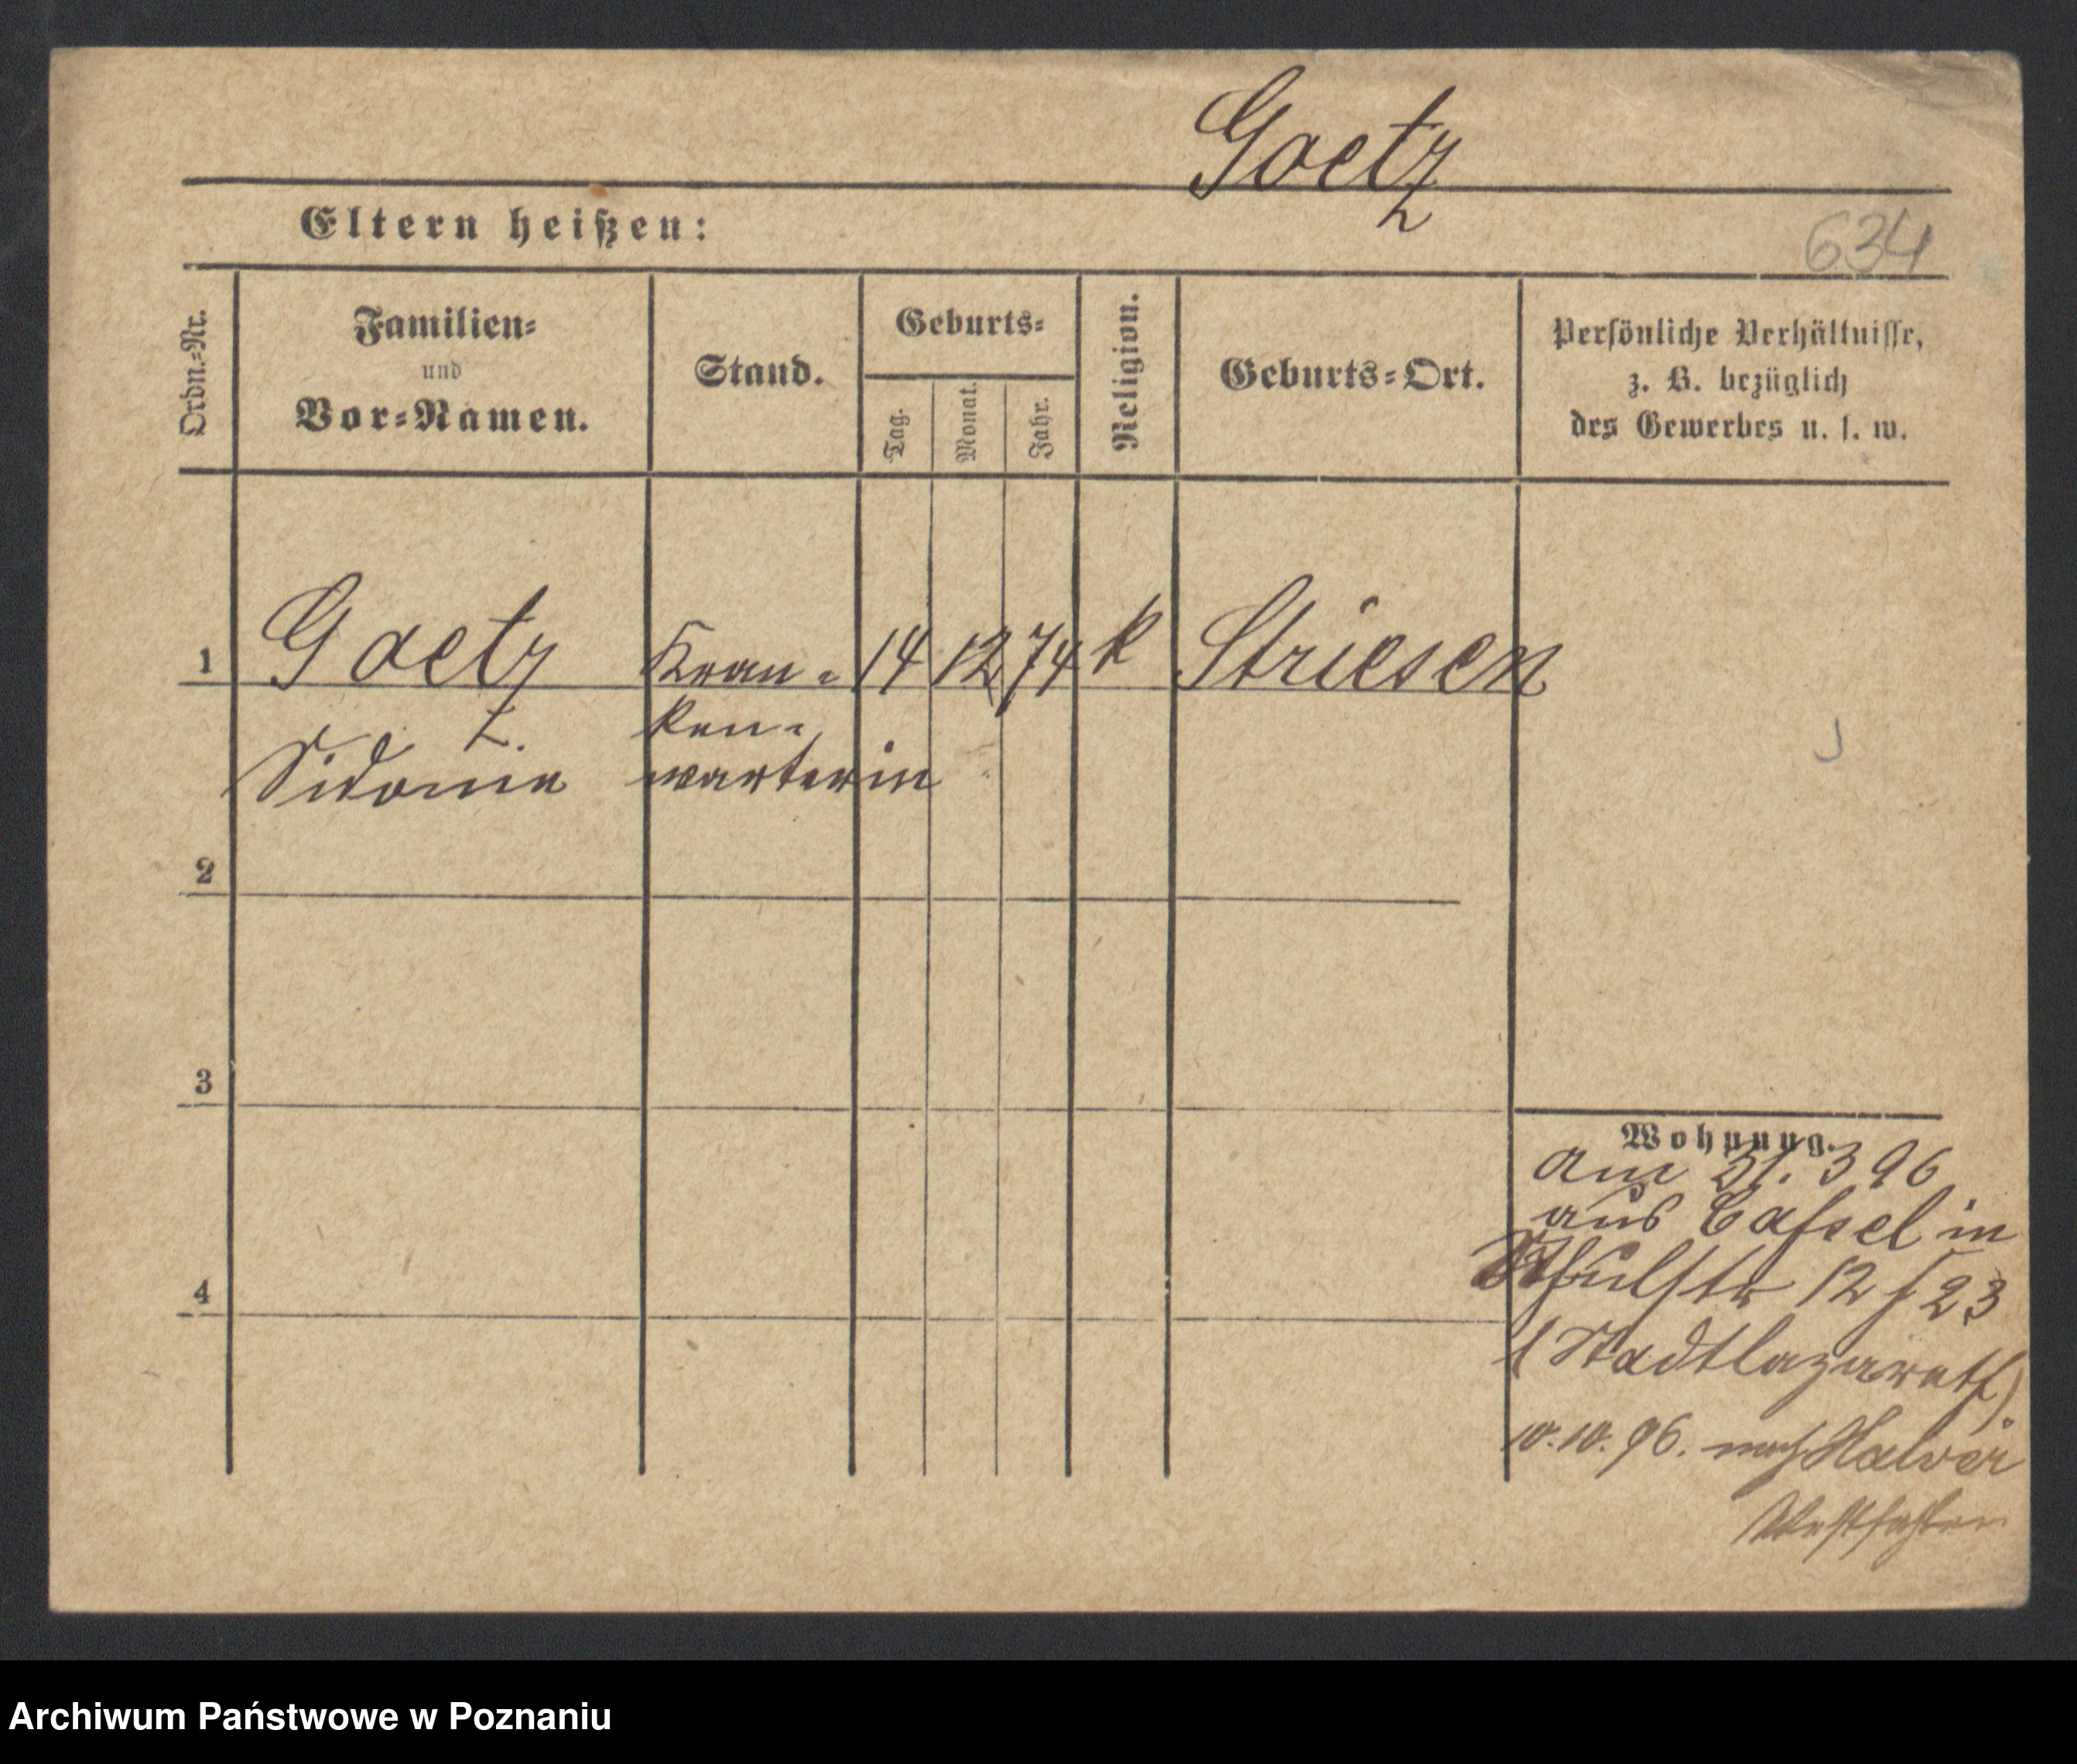 Goetz
Eltern heißen:
634
Ordn.=Nr.
Familien=
und
Vor=Namen.
Stand.
Geburts=
Tag.
Monat.
Jahr.
Religion.
Geburts=Ort.
Persönliche Verhältnisse,
z. B. bezüglich
des Gewerbes u. s. w.
1 Goetz Kran= 14 12 74 k Striesen
ken=
Sidonie warterin
2
3
4
Wohnung.
am 31. 3 96
aus Cassel in
Schulstr 12 f 23
(Stadtlazareth).
10.10.96. nach Halver
Westfalen
Archiwum Państwowe w Poznaniu